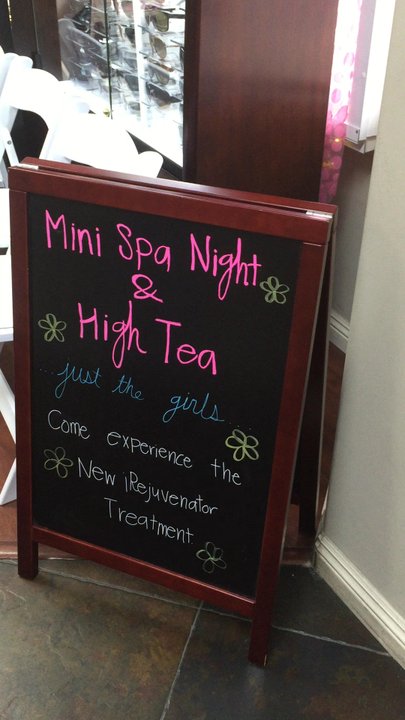 Mini Spa Night
&
High Tea
...just the girls...
Come experience the
New iRejuvenator
Treatment